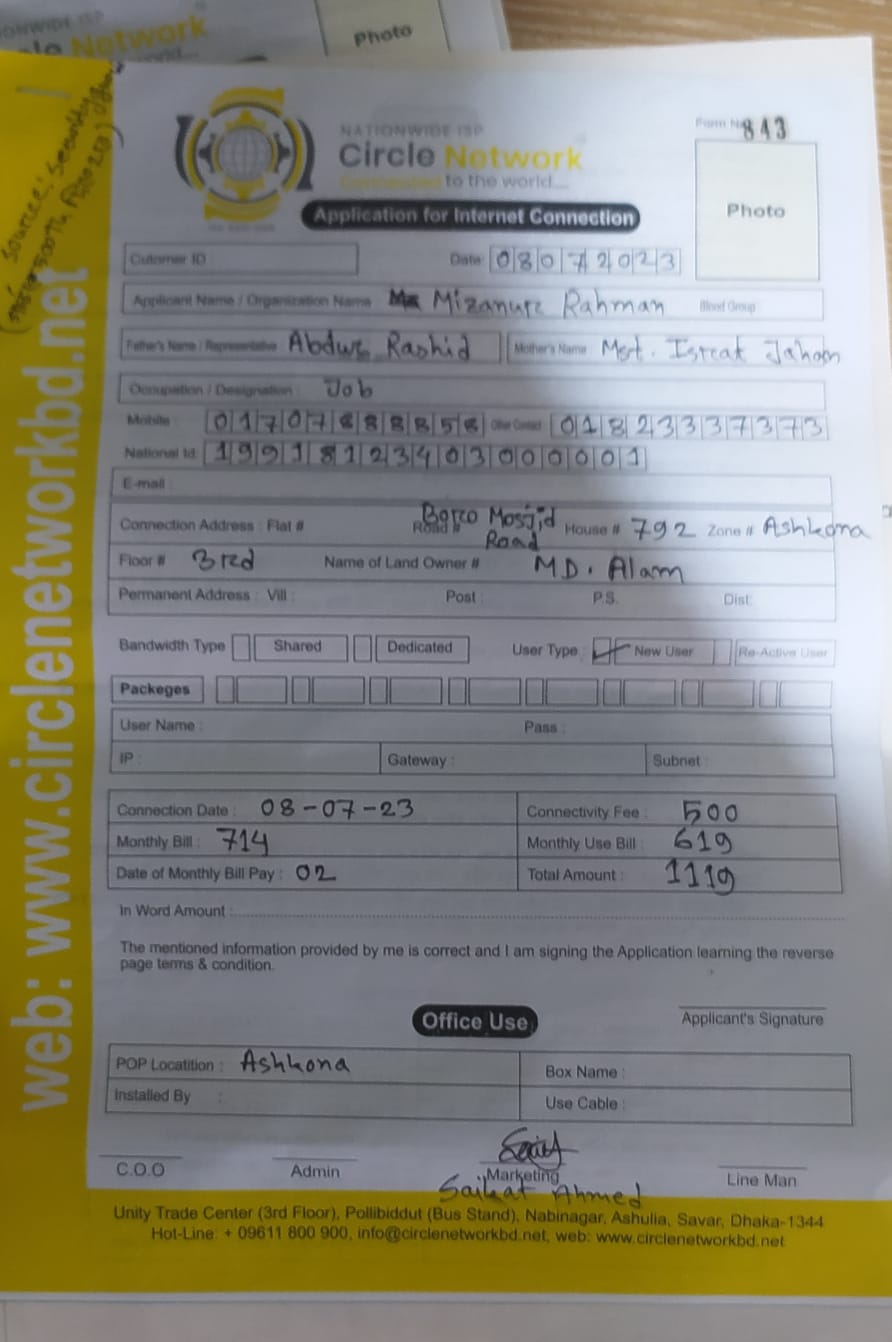 Photo
Network
NATIONWIDE ISP
Circle Network
Connected to the world...
Form No 843
Photo
Application for Internet Connection
Cutomer ID
Date: 08072023
Applicant Name / Organization Name Mizanur Rahman Blood Group
Father's Name / Representative Abdur Rashid Mother's Name Mst. Isreat Jahan
Occupation / Designation : Job
Mobile : Other Contact 01823337373
National Id: 19918123403000001
E-mail :
Connection Address : Flat # Road # Boro Mosjid Road House # 792 Zone # Ashkona
Floor # 3rd Name of Land Owner # MD. Alam
Permanent Address : Vill : Post : P.S. Dist:
Bandwidth Type Shared Dedicated User Type : New User Re-Active User
Packeges
User Name : Pass :
IP : Gateway : Subnet :
Connection Date : 08-07-23 Connectivity Fee : 500
Monthly Bill : 714 Monthly Use Bill : 619
Date of Monthly Bill Pay : 02 Total Amount : 1119
In Word Amount :
The mentioned information provided by me is correct and I am signing the Application learning the reverse
page terms & condition.
Applicant's Signature
Office Use
POP Locatition : Ashkona Box Name :
Installed By : Use Cable :
C.O.O Admin Marketing Line Man
Saikat Ahmed
Unity Trade Center (3rd Floor), Pollibiddut (Bus Stand), Nabinagar, Ashulia, Savar, Dhaka-1344
Hot-Line: + 09611 800 900, info@circlenetworkbd.net, web: www.circlenetworkbd.net
web: www.circlenetworkbd.net
Source: Security